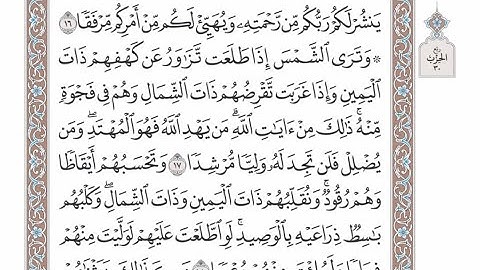 يَنشُرْ لَكُمْ رَبُّكُم مِّن رَّحْمَتِهِۦ وَيُهَيِّئْ لَكُم مِّنْ أَمْرِكُم مِّرْفَقًا ١٦
۞ وَتَرَى ٱلشَّمْسَ إِذَا طَلَعَت تَّزَٰوَرُ عَن كَهْفِهِمْ ذَاتَ
ٱلْيَمِينِ وَإِذَا غَرَبَت تَّقْرِضُهُمْ ذَاتَ ٱلشِّمَالِ وَهُمْ فِى فَجْوَةٍ
مِّنْهُ ۚ ذَٰلِكَ مِنْ ءَايَٰتِ ٱللَّهِ ۗ مَن يَهْدِ ٱللَّهُ فَهُوَ ٱلْمُهْتَدِ ۖ وَمَن
يُضْلِلْ فَلَن تَجِدَ لَهُۥ وَلِيًّا مُّرْشِدًا ١٧ وَتَحْسَبُهُمْ أَيْقَاظًا
وَهُمْ رُقُودٌ ۚ وَنُقَلِّبُهُمْ ذَاتَ ٱلْيَمِينِ وَذَاتَ ٱلشِّمَالِ ۖ وَكَلْبُهُم
بَٰسِطٌ ذِرَاعَيْهِ بِٱلْوَصِيدِ ۚ لَوِ ٱطَّلَعْتَ عَلَيْهِمْ لَوَلَّيْتَ مِنْهُمْ
ربع
الحزب
٣٠